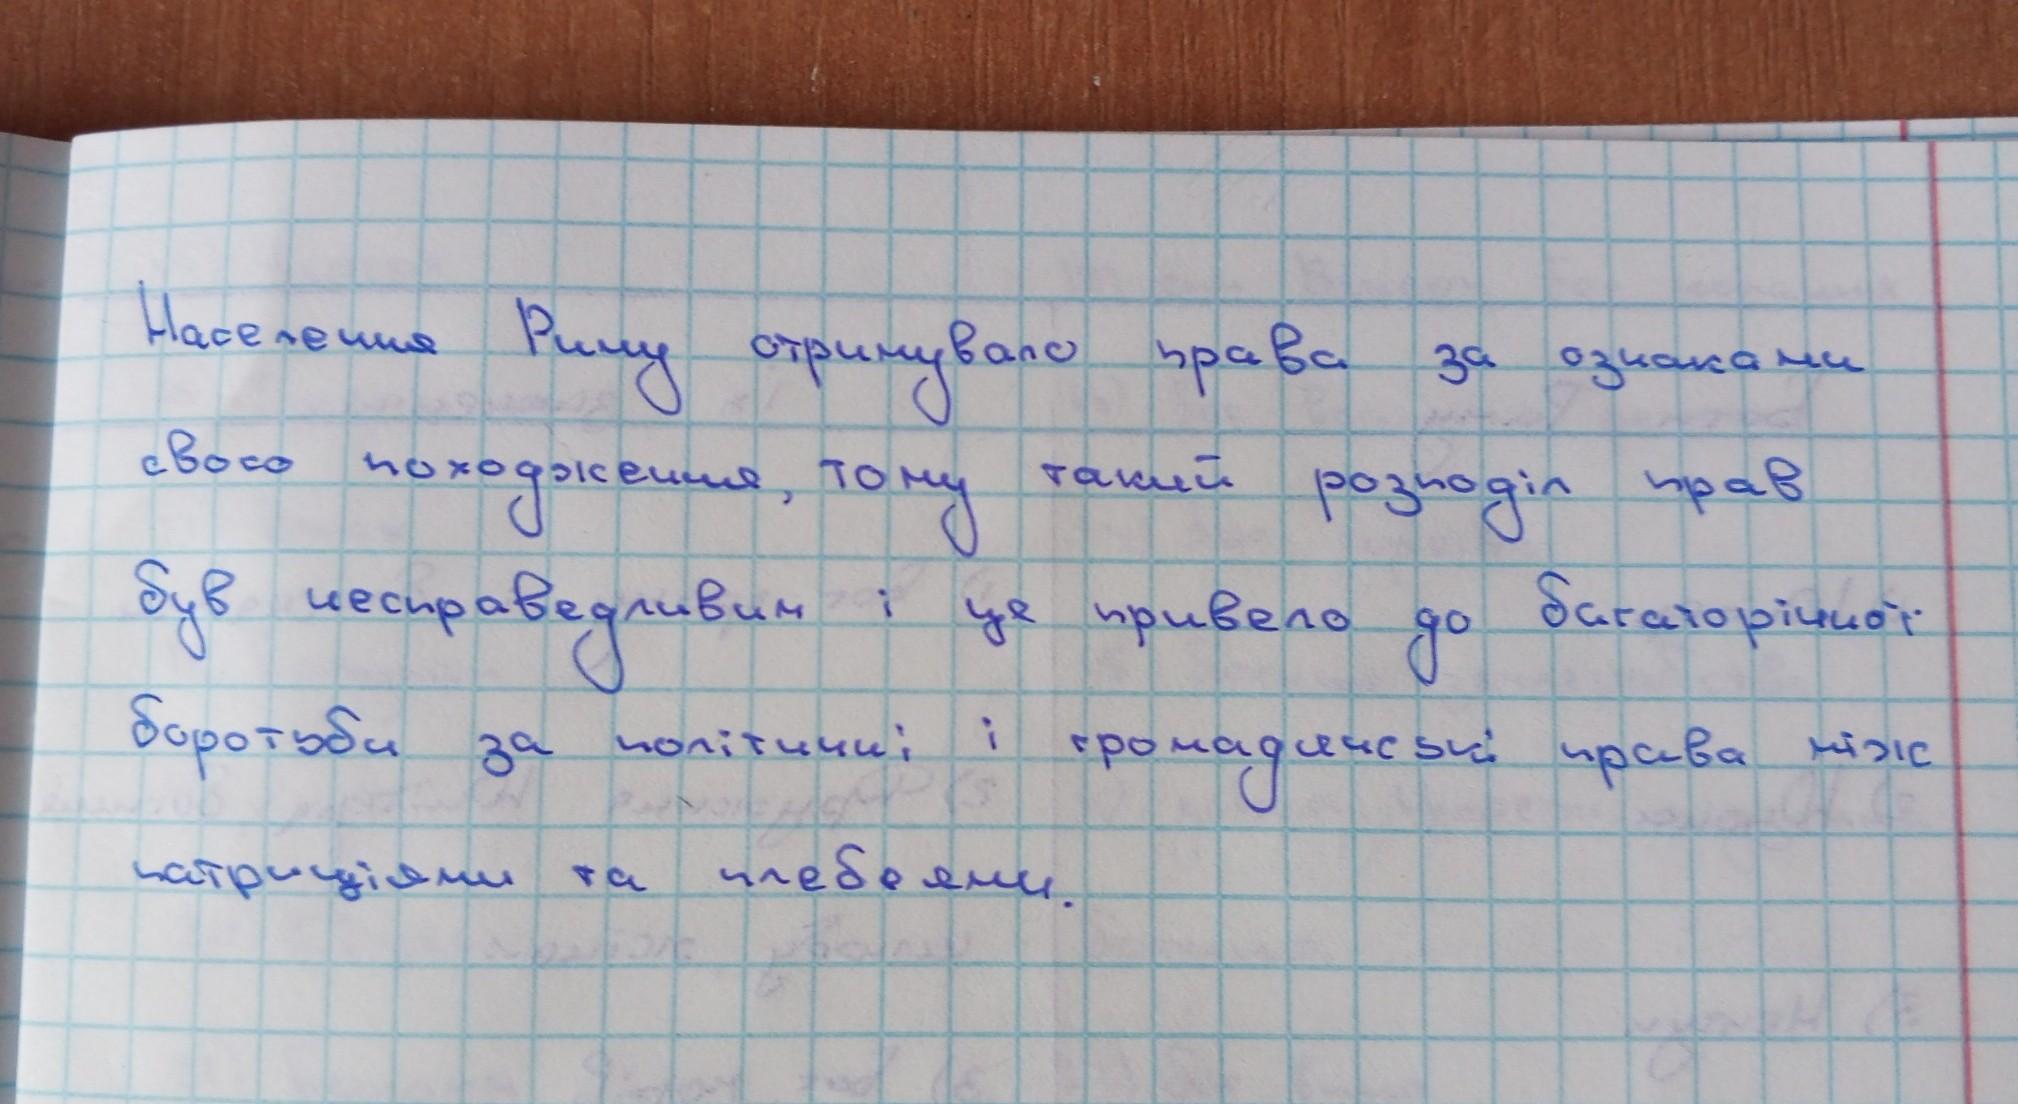 Населення Риму отримувало права за ознаками
свого походження, тому такий розподіл прав
був несправедливим і це привело до багаторічної
боротьби за політичні і громадянські права між
патриціями та плебеями.